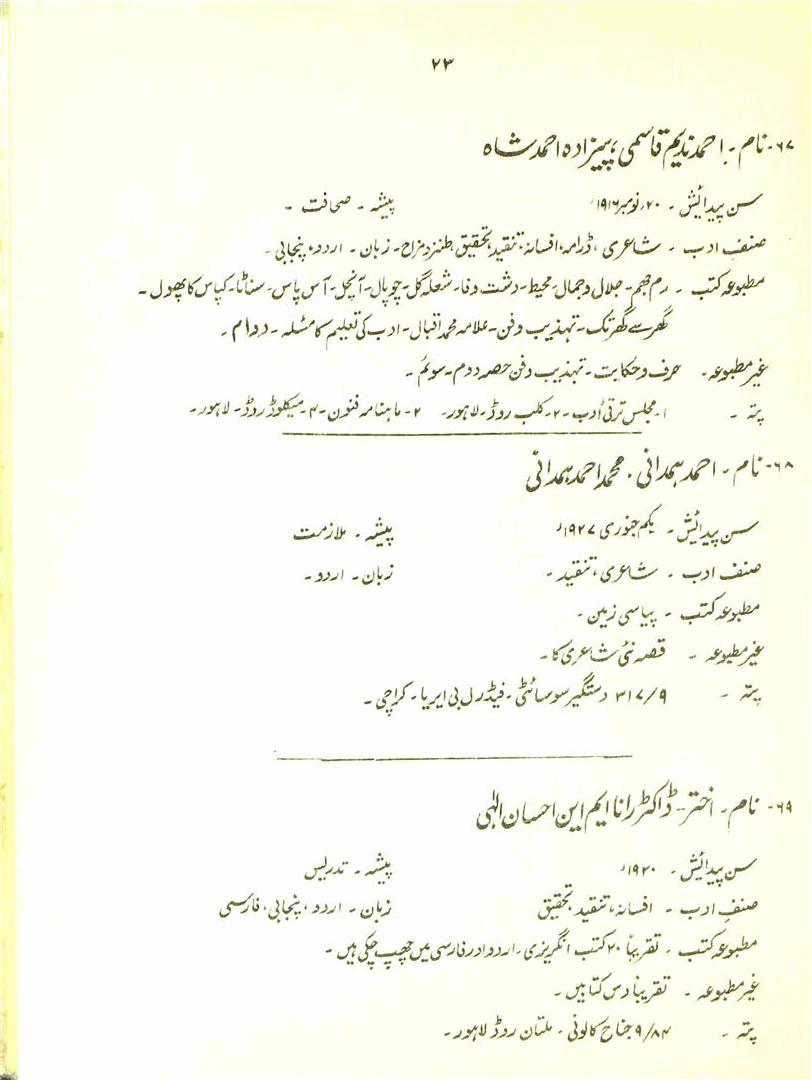 ۲۳
۶۷- نام - احمد ندیم قاسمی، پیرزادہ احمد شاہ
سن پیدائش - ۲۰ نومبر ۱۹۱۶ء پیشہ - صحافت -
صنف ادب - شاعری، ڈرامہ، افسانہ، تنقید، تحقیق، طنز و مزاح - زبان - اردو، پنجابی -
مطبوعہ کتب - رم جھم - جلال و جمال - محیط - دشت وفا - شعلہ گل - چوپال - آنچل - آس پاس - سناٹا - کپاس کا پھول -
گھر سے گھر تک - تہذیب و فن - علامہ محمد اقبال - ادب کی تعلیم کا مسئلہ - دوام -
غیر مطبوعہ - حرف و حکایت - تہذیب و فن حصہ دوم - سوئم -
پتہ - ۱- مجلس ترقی ادب - ۲- کلب روڈ - لاہور - ۲- ماہنامہ فنون - ۴- میکلوڈ روڈ - لاہور -
۶۸- نام - احمد ہمدانی، محمد احمد ہمدانی
سن پیدائش - یکم جنوری ۱۹۲۷ء پیشہ - ملازمت
صنف ادب - شاعری، تنقید - زبان - اردو -
مطبوعہ کتب - پیاسی زمین -
غیر مطبوعہ - قصہ نئی شاعری کا -
پتہ - ۳۱۷/۹ دستگیر سوسائٹی - فیڈرل بی ایریا - کراچی -
۶۹- نام - اختر - ڈاکٹر رانا ایم این احسان الٰہی
سن پیدائش - ۱۹۲۰ء پیشہ - تدریس
صنف ادب - افسانہ، تنقید، تحقیق زبان - اردو، پنجابی، فارسی
مطبوعہ کتب - تقریباً ۲۰ کتب انگریزی، اردو اور فارسی میں چھپ چکی ہیں -
غیر مطبوعہ - تقریباً دس کتابیں -
پتہ - ۹/۸۴ جناح کالونی - ملتان روڈ لاہور -